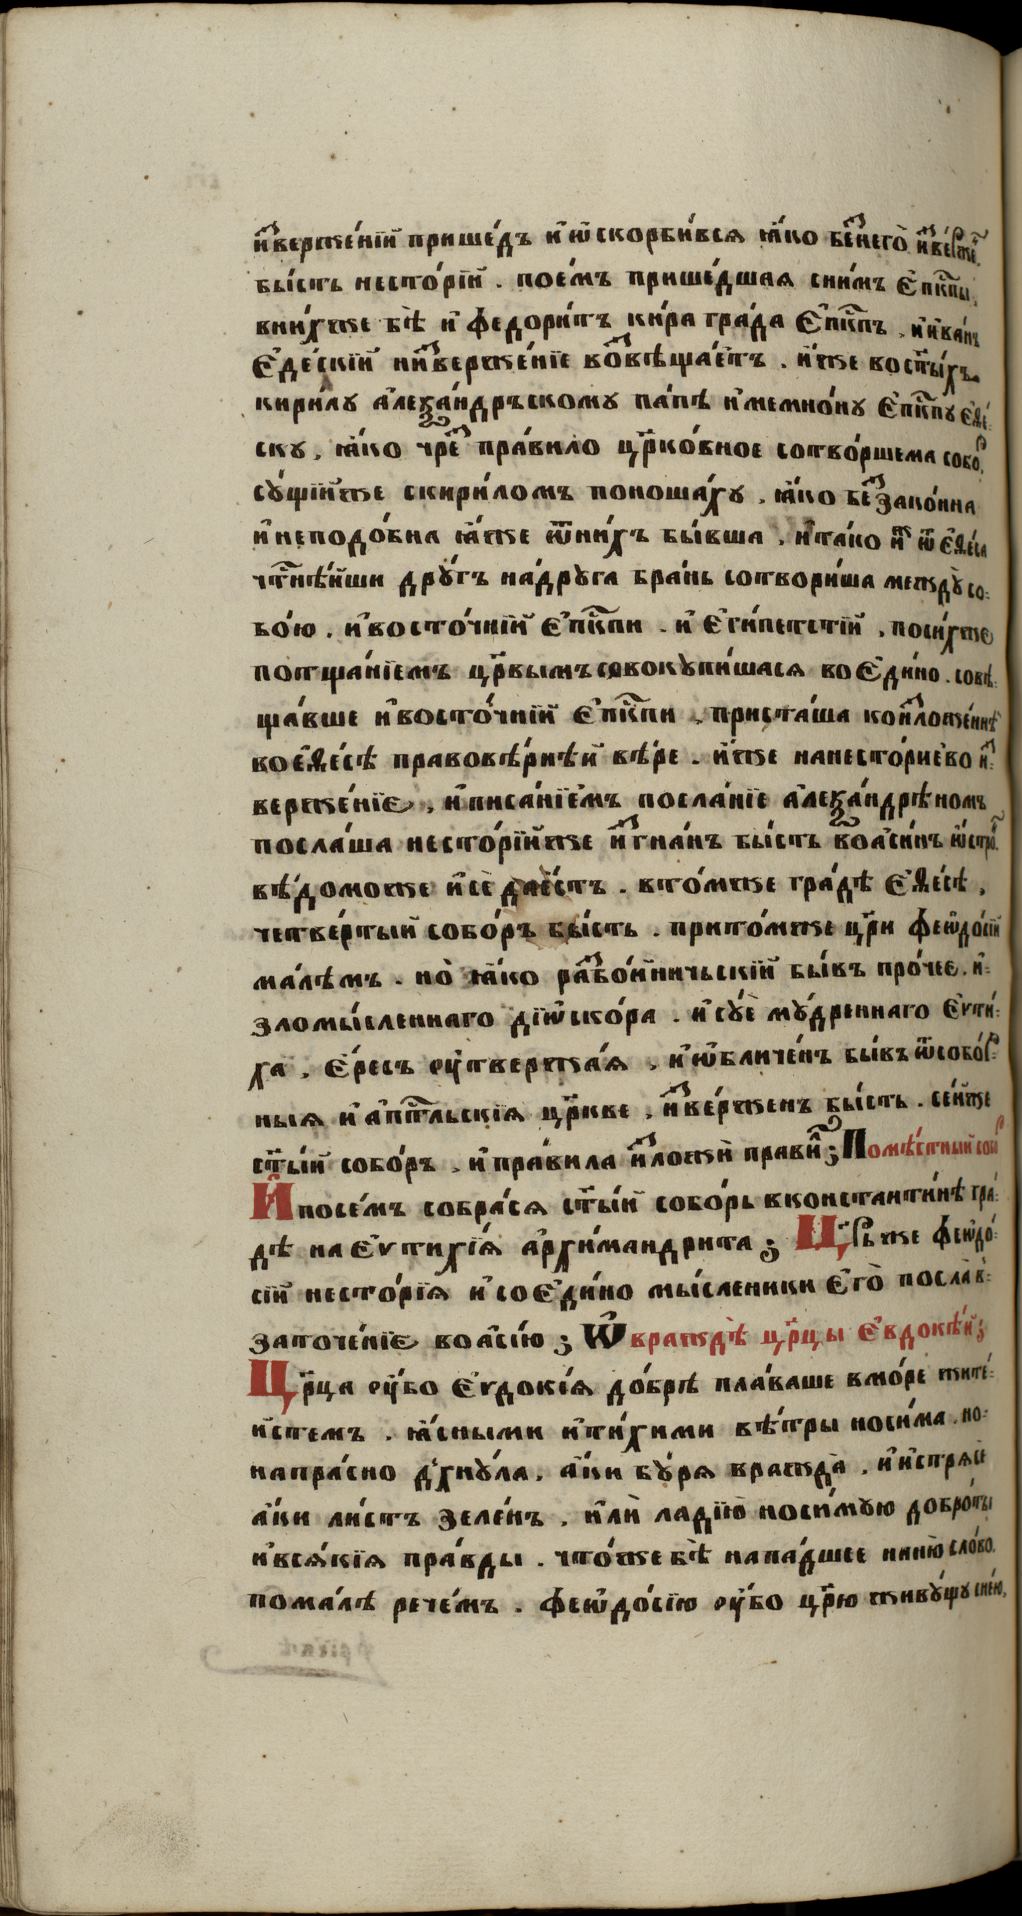 и҆звержє́нїй прише́дъ и҆ѡ҆скорби́всѧ ꙗ҆́ко бе́знегѡ̀ и҆зве́рже
бы́сть несто́рїй . пое́мъ прише́дшаѧ сни́мъ є҆пⷭ҇кпы,
вни́хже бѣ̀ и҆ ѳедори́тъ ки́ра гра́да є҆пⷭ҇кпъ , и҆и҆ва́нъ
є҆де́скїй и҆ и҆звержє́нїе возвѣща́етъ . и҆́же во ст҃ы́хъ
кири́лу а҆леѯа́ндръскому па́пѣ и҆ мемно́ну є҆пⷭ҇кпу є҆ѳе́-
ску , ꙗ҆́ко чре́з пра́вило цр҃ко́вное сотво́ршема собо́р,
су́щїи́же скири́ломъ поноша́ху , ꙗ҆́ко бе́ззако́нна
и҆ неподо́бна ꙗ҆́же ѿни́хъ бы́вша , и҆ та́ко и҆̀ж ѿ є҆ѳе́са
чтⷭ҇нѣ́йши дру́гъ на́друга бра́нь сотвори́ша междꙋ̀ со-
бо́ю . и҆ восто́чнїй є҆пⷭ҇кпи . и҆ є҆ги́петстїй , поси́хже
потща́нїемъ цр҃вымъ совокупи́шасѧ во є҆ди́но . совѣ-
ща́вше и҆ восто́чнїй є҆пⷭ҇кпи , приста́ша ко и҆зложе́ннѣ
ко є҆ѳе́сѣ правовѣ́рнѣй вѣ́ре . и҆́же на несто́риево и҆з-
вержє́нїе , и҆ писа́нїемъ посла́нїе а҆леѯа́ндрѣ номъ
посла́ша несто́рїй́же и҆згна́нъ бы́сть воа҆си́нъ и҆ стра
вѣ́доможе и҆ сѐ да́стъ . в то́мже гра́дѣ є҆ѳе́сѣ ,
четве́ртый собо́ръ бы́сть . при то́мже цр҃и ѳеѡ҆до́сїй
ма́лѣмъ . но̀ ꙗ҆́ко разбо́йничьскїй бы́въ про́чее . и҆-
зломы́сленнаго дїѡ҆ско́ра . и҆ су́е му́дреннаго є҆ѵти́-
ха , є҆́ресь оу҆твержа́ѧ , и҆ ѡ҆бличе́нъ бы́въ ѿ собо́р-
ныѧ и҆ а҆пⷭ҇тльскїѧ цр҃кве , и҆зве́рженъ бы́сть . се́йже
ст҃ы́й собо́ръ , и҆ пра́вила и҆зложѝ прави́л ; Помѣ́стный собо́р
И҆ посе́мъ собра́сѧ ст҃ы́й собо́ръ в константи́нѣ гра-
дѣ на є҆ѵтихі́ѧ а҆рхи́мандрита ; Цр҃ь же ѳеѡ҆до́-
сїй несто́рїѧ и҆ со є҆ди́но мы́сленики є҆гѡ̀ посла̀ в-
заточе́нїе во а҆сі́ю ; Ѡ҆ враждѣ̀ цр҃цы є҆вдокѣ́и ;
Цр҃ца оу҆́бо є҆ѵдокі́ѧ до́брѣ пла́ваше в мо́ре жите́-
йстем . ꙗ҆́сными и҆ ти́хими вѣ́тры носи́ма . но-
напра́сно дхну́ла , а҆́ки бу́рѧ вражда̀ , и҆ и҆стрѧсѐ
а҆́ки ли́стъ зеле́нъ , и҆лѝ ладїю̀ носи́мую добро́ты
и҆ всѧ́кїѧ пра́вды . что́же бѣ̀ напа́дшее на ню̀ сло́во.
пома́лѣ рече́мъ . ѳеѡ҆до́сїю оу҆́бо цр҃ю живу́щу сне́ю,